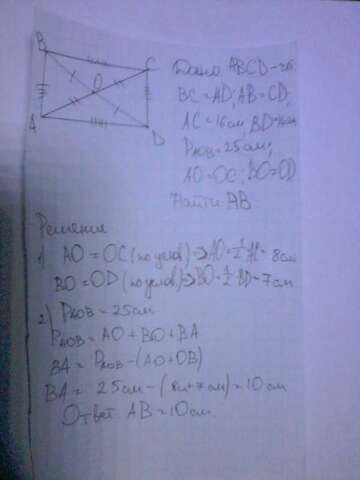 B
C
O
A
D
Дано: ABCD –
BC = AD; AB = CD;
AC = 16 см, BD =
P AOB = 25 см;
AO = OC; BO = OD
Найти: AB
Решение
1. AO = OC (по услов) => AO = 1/2 AC = 8 см
BO = OD (по услов) => BO = 1/2 BD = 7 см
2) P AOB = 25 см
P AOB = AO + BO + BA
BA = P AOB – (AO + OB)
BA = 25 см – (8см + 7 см) = 10 см
Ответ: AB = 10 см.